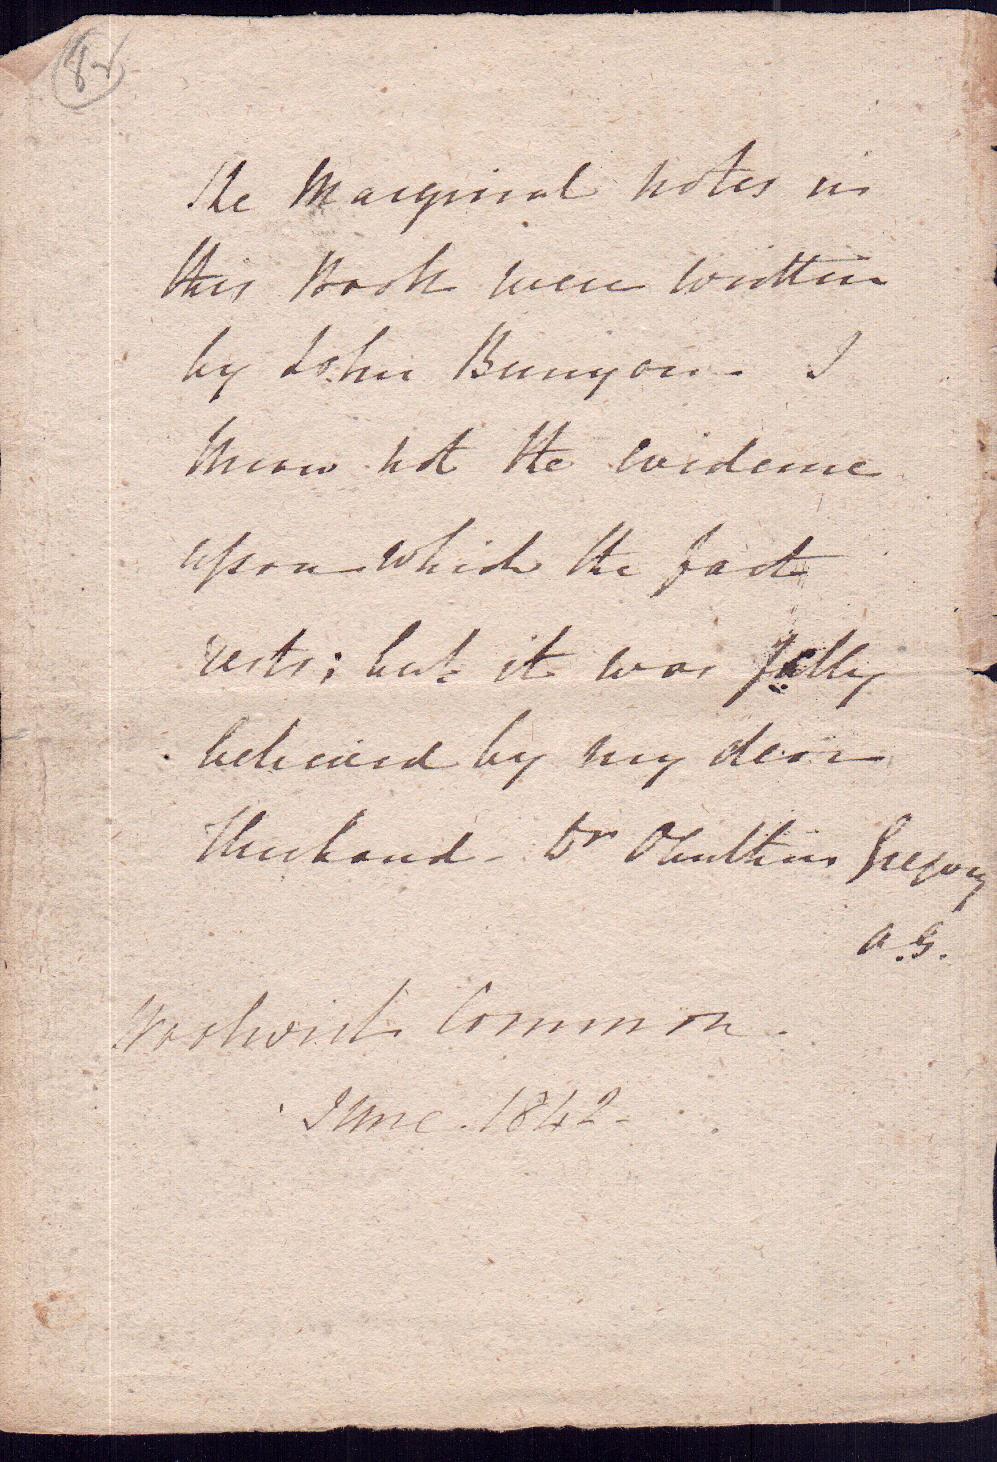 The Marginal notes in
this Book were written
by John Bunyan - I
know not the evidence
upon which the fact
rests; but it was fully
believed by my dear
Husband - Dr Olinthus Gregory
A.G.
Woolwich Common.
June. 1842-